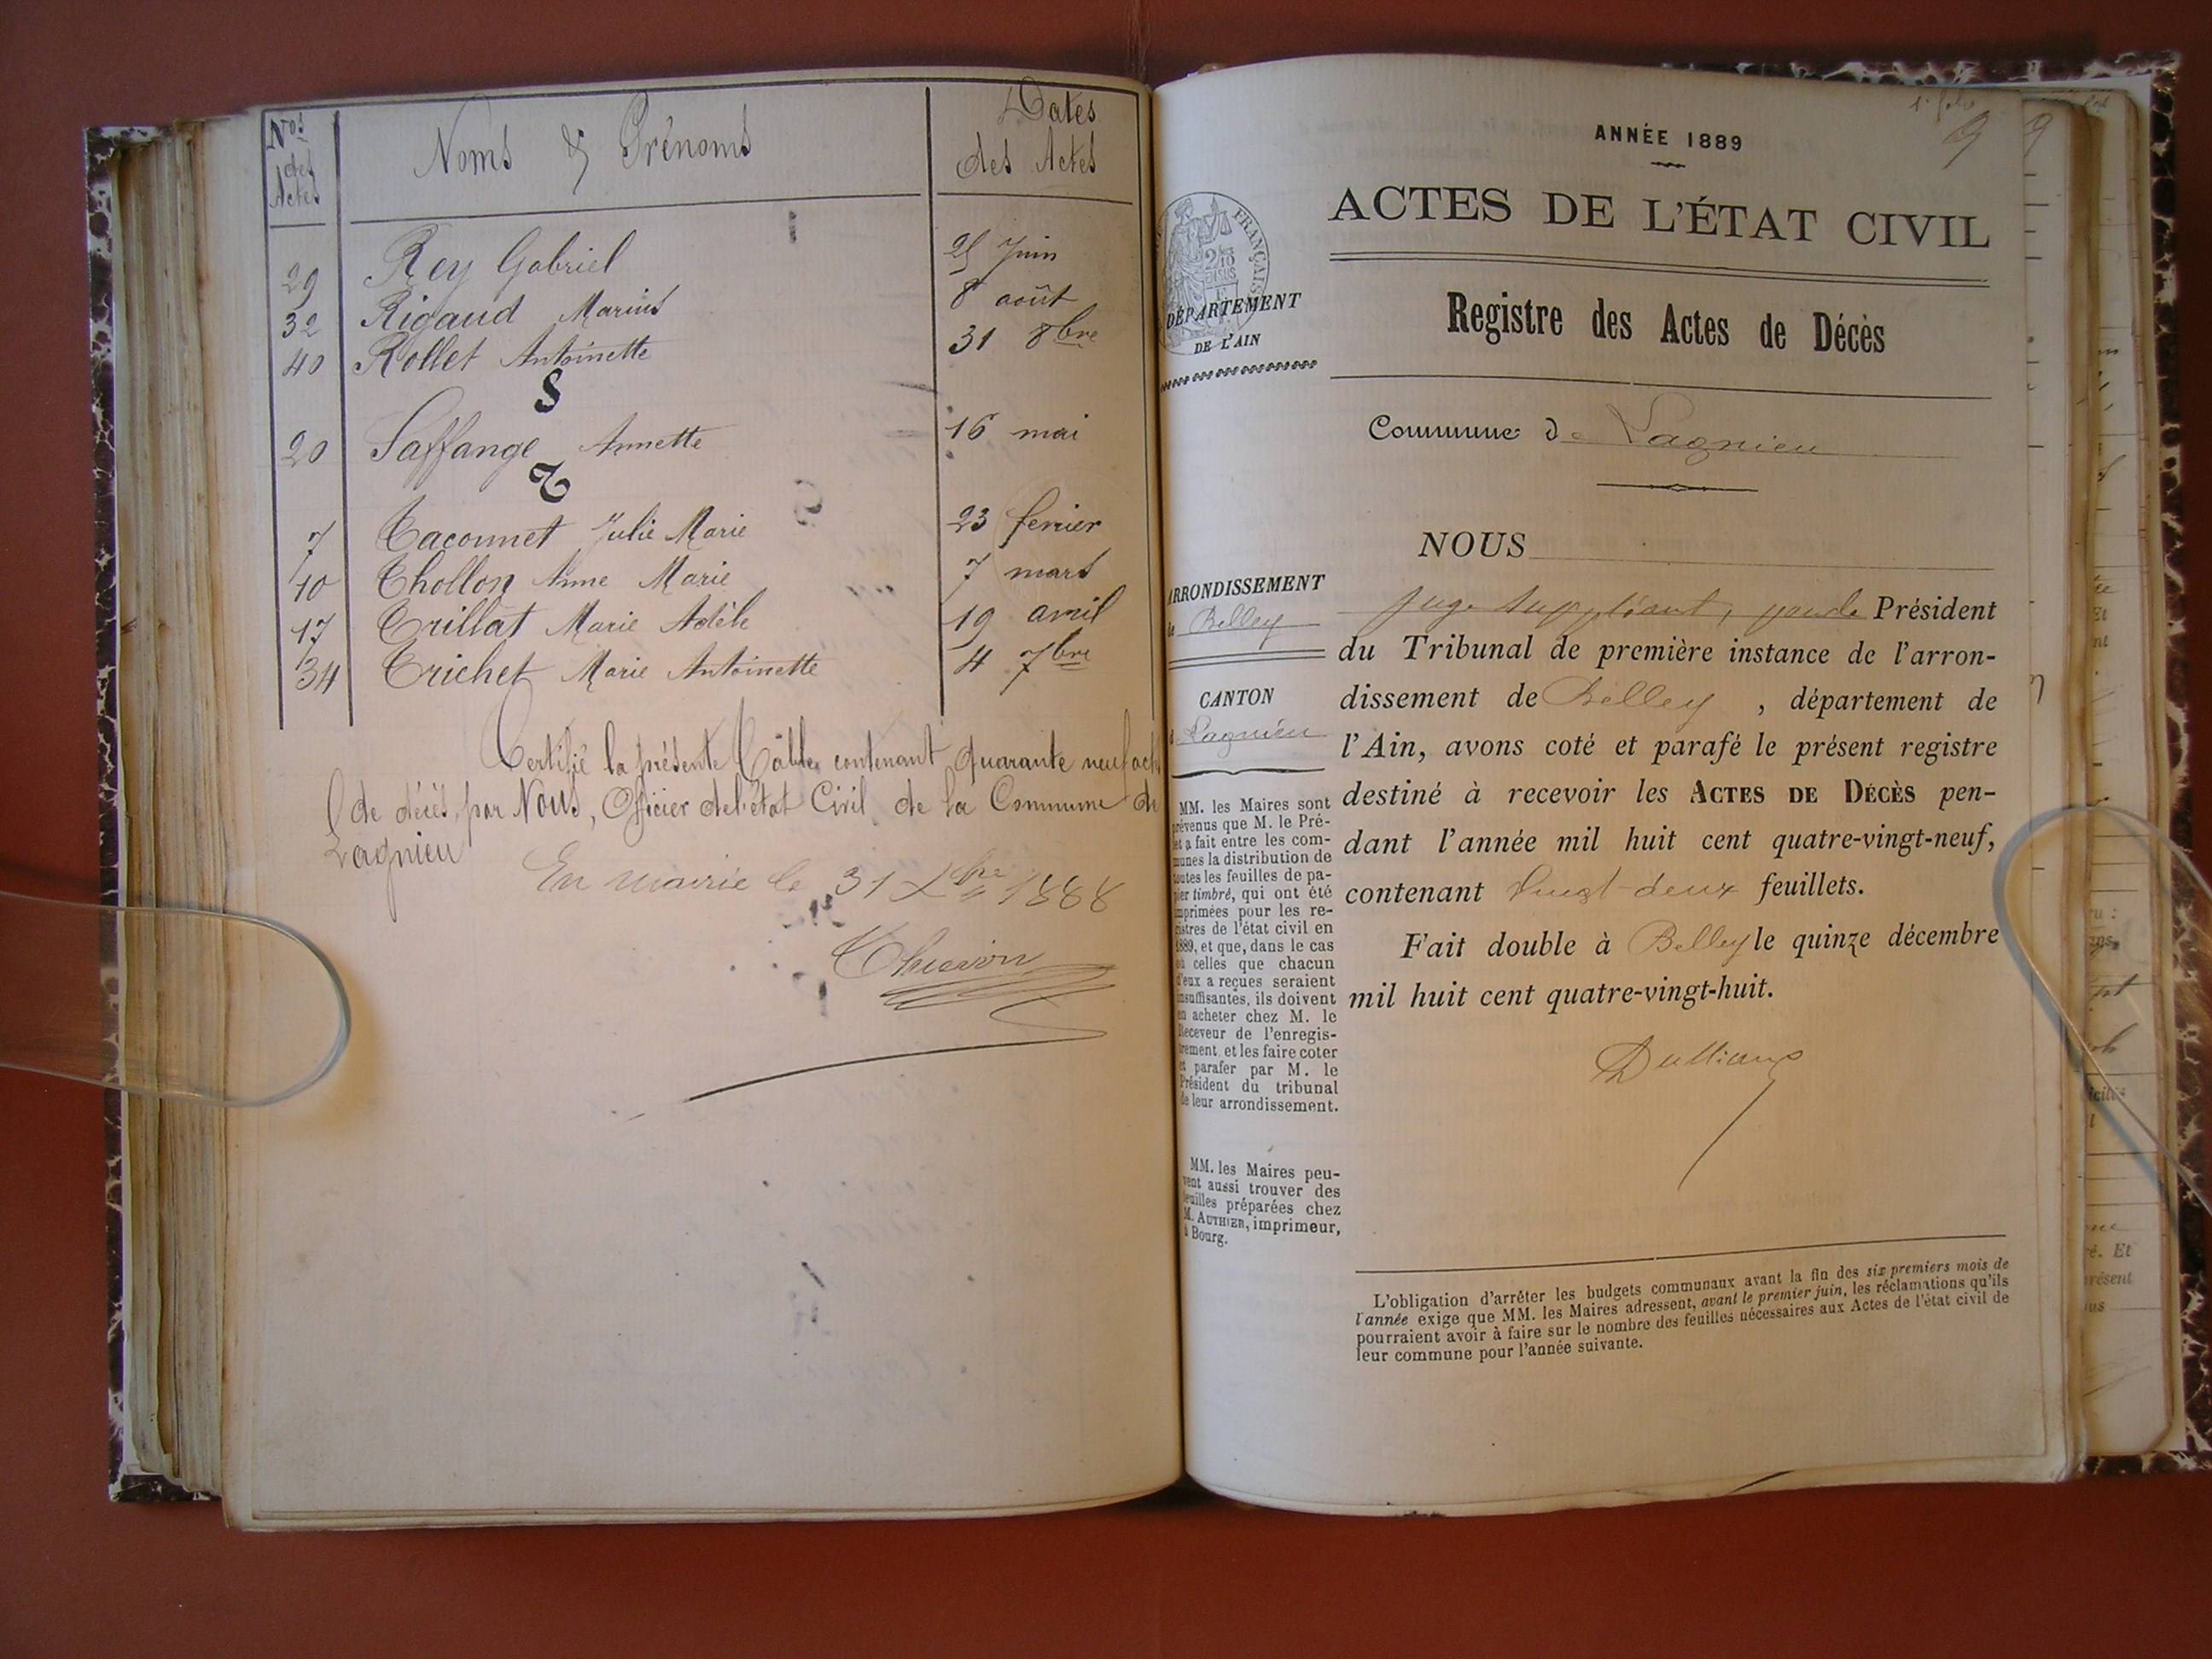 Nos des Actes
Noms & Prénoms
Dates des Actes
29 Rey Gabriel 25 Juin
32 Rigaud Marius 8 août
40 Rollet Antoinette 31 8bre
S
20 Saffange Annette 16 mai
T
7 Taconnet Julie Marie 23 fevrier
10 Thollon Anne Marie 7 mars
17 Trillat Marie Adèle 19 avril
34 Trichet Marie Antoinette 4 7bre
Certifié la présente Table contenant quarante neuf actes
de décès, par Nous, Officier de l'état Civil de la Commune de
Lagnieu
En mairie le 31 Xbre 1888
1er folio
9
ANNÉE 1889
ACTES DE L'ÉTAT CIVIL
Registre des Actes de Décès
Commune de Lagnieu
DÉPARTEMENT
DE L'AIN
ARRONDISSEMENT
de Belley
CANTON
de Lagnieu
MM. les Maires sont
prévenus que M. le Pré-
fet a fait entre les com-
munes la distribution de
toutes les feuilles de pa-
pier timbré, qui ont été
imprimées pour les re-
gistres de l'état civil en
1889, et que, dans le cas
où celles que chacun
d'eux a reçues seraient
insuffisantes, ils doivent
en acheter chez M. le
Receveur de l'enregis-
trement et les faire coter
et parafer par M. le
Président du tribunal
de leur arrondissement.
MM. les Maires peu-
vent aussi trouver des
feuilles préparées chez
M. AUTHIER, imprimeur,
à Bourg.
NOUS
Juge suppléant, pour le Président
du Tribunal de première instance de l'arron-
dissement de Belley , département de
l'Ain, avons coté et parafé le présent registre
destiné à recevoir les ACTES DE DÉCÈS pen-
dant l'année mil huit cent quatre-vingt-neuf,
contenant Vingt-deux feuillets.
Fait double à Belley le quinze décembre
mil huit cent quatre-vingt-huit.
L'obligation d'arrêter les budgets communaux avant la fin des six premiers mois de
l'année exige que MM. les Maires adressent, avant le premier juin, les réclamations qu'ils
pourraient avoir à faire sur le nombre des feuilles nécessaires aux Actes de l'état civil de
leur commune pour l'année suivante.